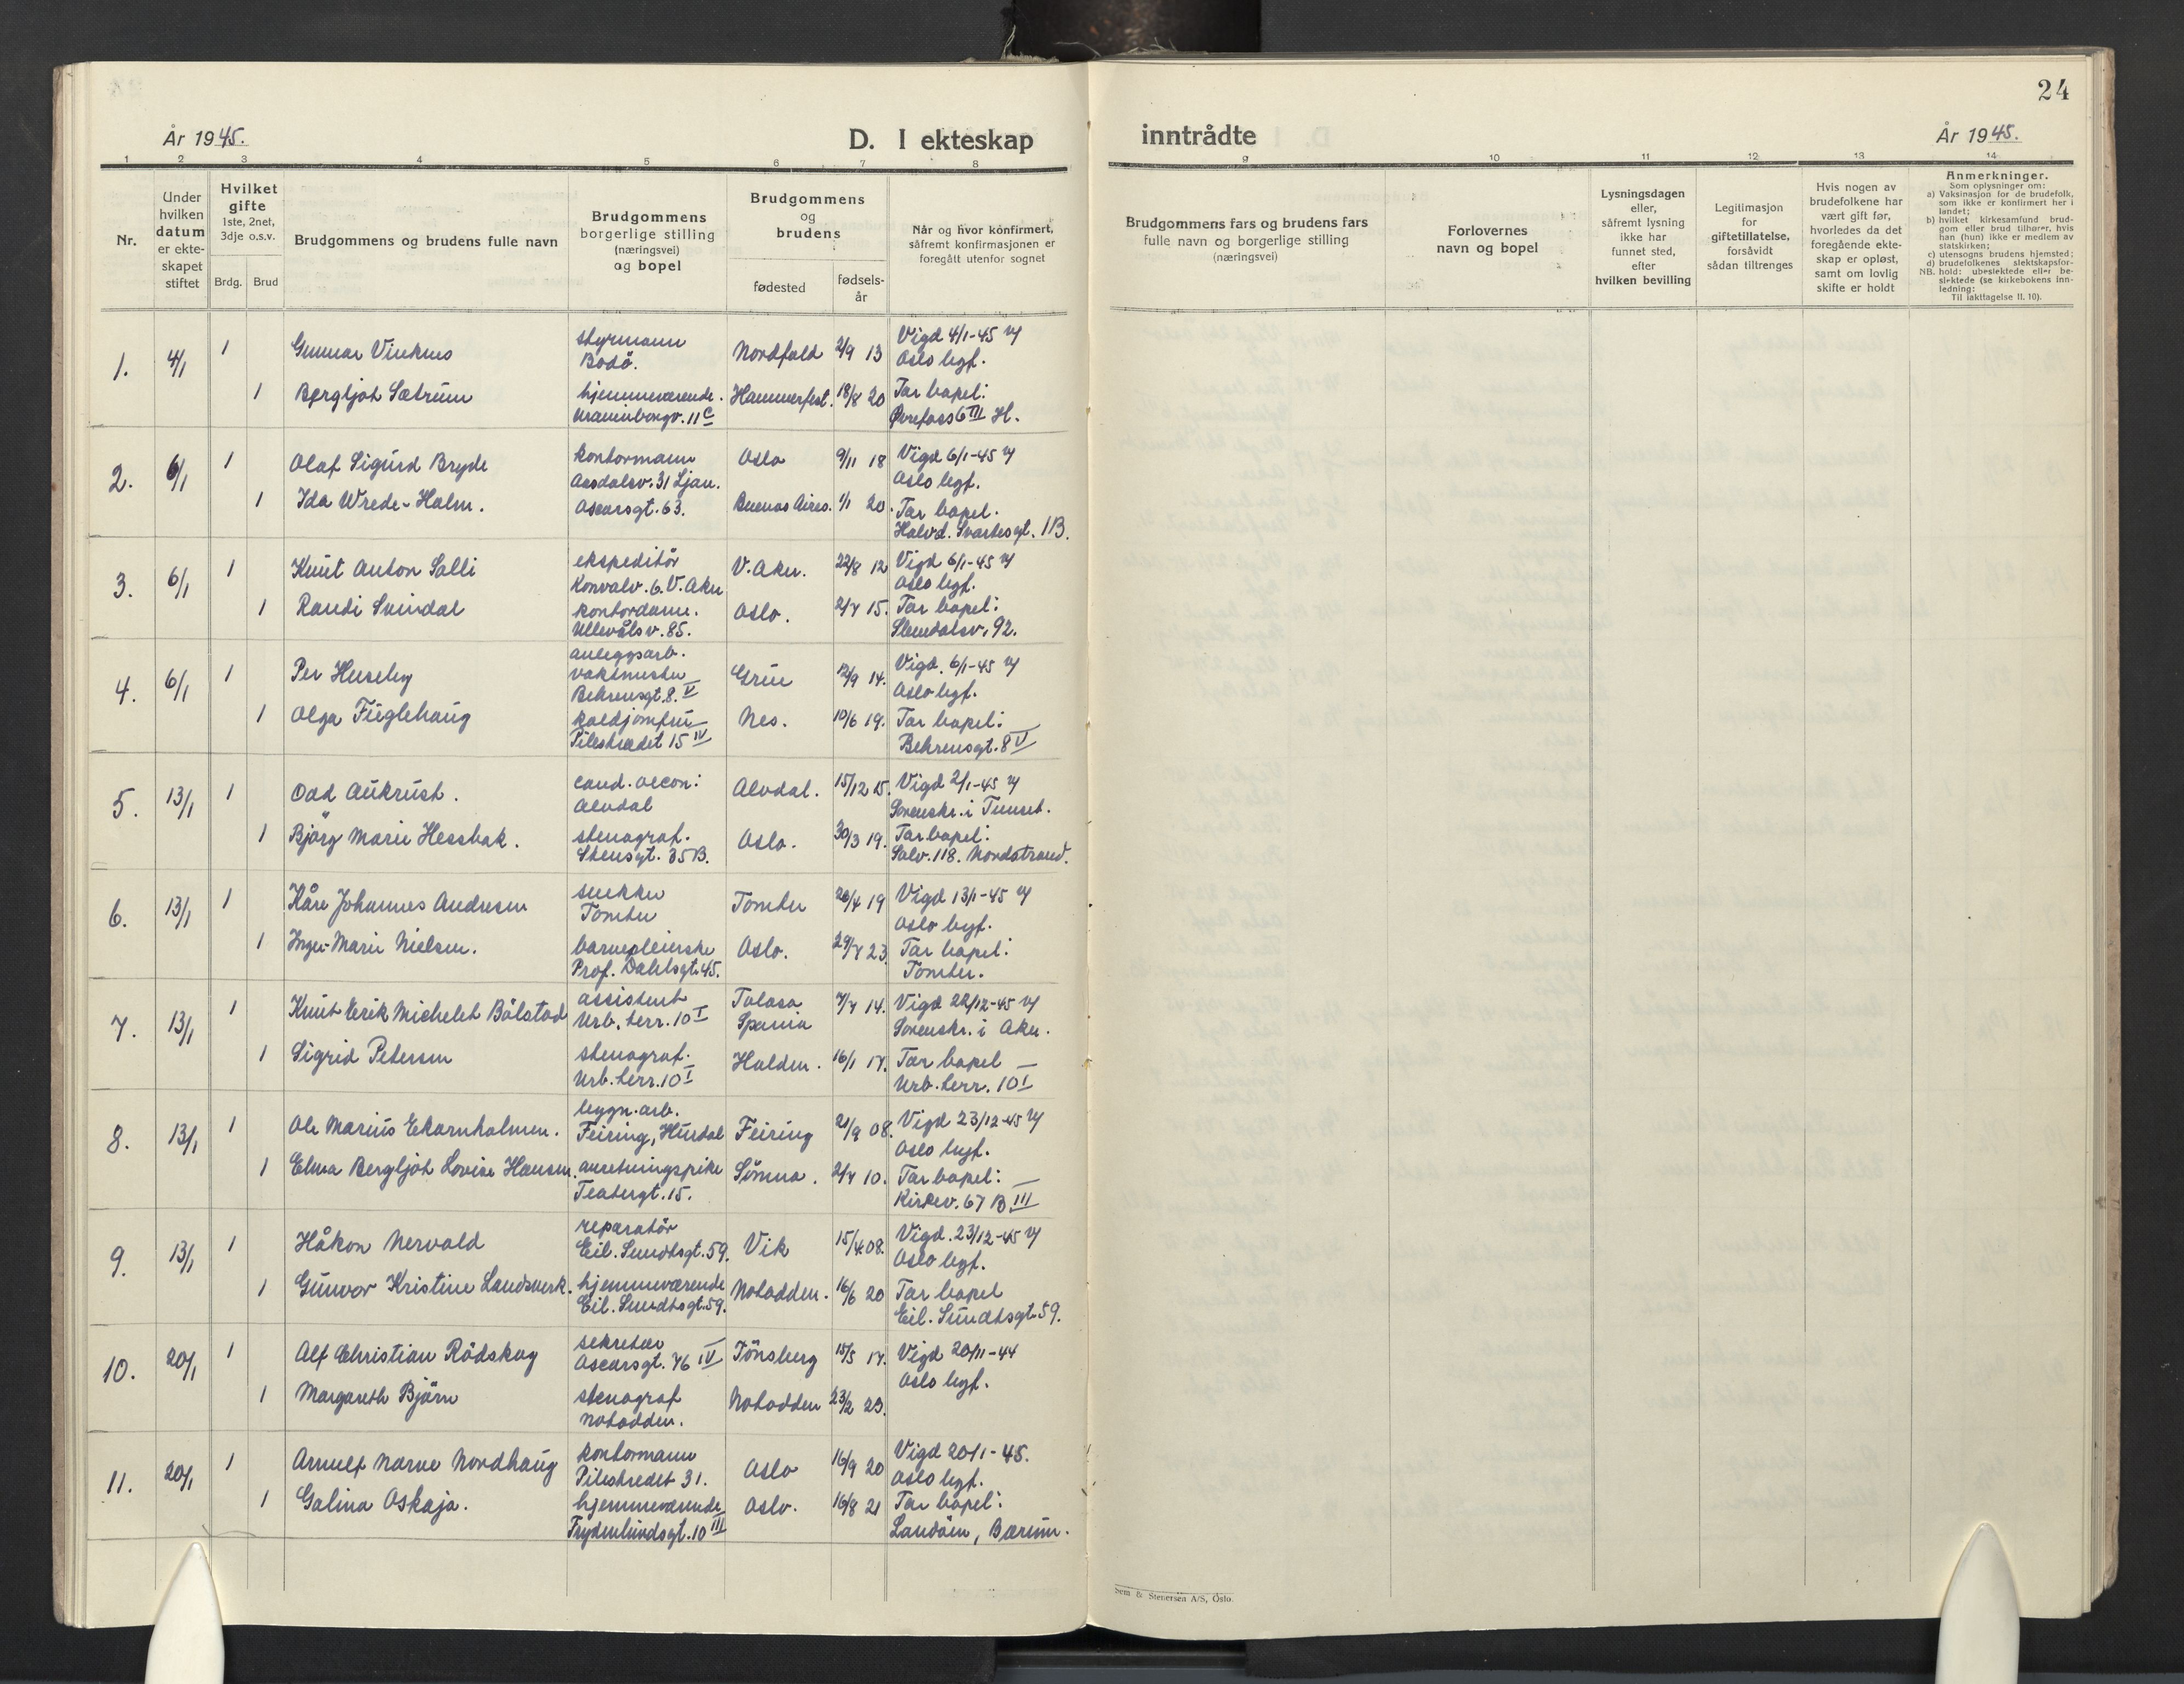 24
År 1945.
D. I ekteskap
inntrådte
År 1945.
1 2 3 4 5 6 7 8
9 10 11 12 13 14
Nr.
Under
hvilken
datum
er ekte-
skapet
stiftet
Hvilket
gifte
1ste, 2net,
3dje o.s.v.
Brdg. Brud
Brudgommens og brudens fulle navn
Brudgommens
borgerlige stilling
(næringsvei)
og bopel
Brudgommens
og
brudens
fødested
fødsels-
år
Når og hvor konfirmert,
såfremt konfirmasjonen er
foregått utenfor sognet
Brudgommens fars og brudens fars
fulle navn og borgerlige stilling
(næringsvei)
Forlovernes
navn og bopel
Lysningsdagen
eller,
såfremt lysning
ikke har
funnet sted,
efter
hvilken bevilling
Legitimasjon
for
giftetillatelse,
forsåvidt
sådan tiltrenges
Hvis nogen av
brudefolkene har
vært gift før,
hvorledes da det
foregående ekte-
skap er opløst,
samt om lovlig
skifte er holdt
Anmerkninger.
Som oplysninger om:
a) Vaksinasjon for de brudefolk,
som ikke er konfirmert her i
landet;
b) hvilket kirkesamfund brud-
gom eller brud tilhører, hvis
han (hun) ikke er medlem av
statskirken;
c) utensogns brudens hjemsted;
d) brudefolkenes slektskapsfor-
NB. hold: ubeslektede eller be-
slektede (se kirkebokens inn-
ledning:
Til iakttagelse II. 10).
1. 4/1 1 Gunnar Vinknes
styrmann
Bodö.
Nordfold 2/9 13
Vigd 4/1-45 v/
Oslo byf.
1 Bergljot Sætrum
hjemmeværende.
Kranınborgv. 11 C
Hammerfest. 18/8 20
Tar bopel:
Øvrefoss 6 III H.
2. 6/1 1 Olaf Sigurd Bryde
kontormann
Aasdalsv. 31 Ljan.
Oslo 9/11 18
Vigd 6/1-45 v/
Oslo byf.
1 Ida Wrede-Holm.
Oscarsgt. 63.
Buenos Aires. 1/1 20.
Tar bopel.
Halvd. Svartesgt. 1B.
3. 6/1 1 Knut Anton Solli
ekspeditör
Konvalv. 6. V. Aker
V. Aker. 22/8 12
Vigd 6/1-45 v/
Oslo byf.
1 Randi Svindal
kontordame.
Ullevålsv. 85.
Oslo. 2/7 15.
Tar bopel:
Slemdalsv. 92.
4. 6/1 1 Per Huseby
anleggsarb.
vaktmester
Behrensgt. 8. V
Grue 12/9 14.
Vigd. 6/1-45 v/
Oslo byf.
1 Olga Fuglehaug
koldjomfru
Pilestredet 15 IV
Nes. 10/6 19.
Tar bopel:
Behrensgt. 8 V
5. 13/1 1 Odd Aukrust.
cand. oecon:
Alvdal
Alvdal. 15/12 15.
Vigd 2/1-45 v/
Sorenskr. i Tynset.
1 Björg Marie Hessbak.
stenograf.
Stensgt. 35 B.
Oslo. 30/3 19.
Tar bopel:
Solv. 118. Nordstrand.
6. 13/1 1 Kåre Johannes Andresen
snekker
Tomter
Tomter 26/4 19
Vigd 13/1-45 v/
Oslo byf.
1 Inger-Marie Nielsen.
barnepleierske
Prof. Dahlsgt. 45.
Oslo. 29/7 23.
Tar bopel:
Tomter.
7. 13/1 1 Knut Erik Michelet Bölstad
assistent
Urb. terr. 10 I
Tolosa
Spania
7/7 14.
Vigd 22/12-45 v/
Sorenskr. i Aker.
1 Sigrid Petersen
stenograf.
Urb. terr. 10 I
Halden. 16/1 17.
Tar bopel
Urb. terr. 10 I
8. 13/1 1 Ole Marius Ekornholmen.
bygn. arb.
Feiring, Hurdal
Feiring 21/9 08.
Vigd 23/12-45 v/
Oslo byf.
1 Elna Bergljot Lovise Hansen.
anretningspike
Teatergt. 15.
Sömna. 2/7 10.
Tar bopel:
Kirkev. 67 B III
9. 13/1 1 Håkon Nervold
reparatör
Eil. Sundtsgt. 59.
Vik 15/4 08.
Vigd. 23/12-45 v/
Oslo byf.
1 Gunvor Kristine Landsverk.
hjemmeværende
Eil. Sundtsgt. 59.
Notodden. 16/6 20
Tar bopel
Eil. Sundtsgt. 59.
10. 20/1 1 Alf Christian Rödskog
sekretær
Oscarsgt. 76 IV
Tönsberg 15/5 17.
Vigd 20/11-44
Oslo byf.
1 Margareth Björn
stenograf
Notodden.
Notodden 23/2 23.
11. 20/1 1 Arnulf Narve Nordhaug
kontormann
Pilestredet 31.
Oslo 16/9 20
Vigd 20/1-45.
Oslo byf.
1 Galina Oskaja.
hjemmeværende
Frydenlundsgt. 10 III
Oslo. 16/8 21
Tar bopel:
Landöen, Bærum.
Sem & Stenersen A/S, Oslo.